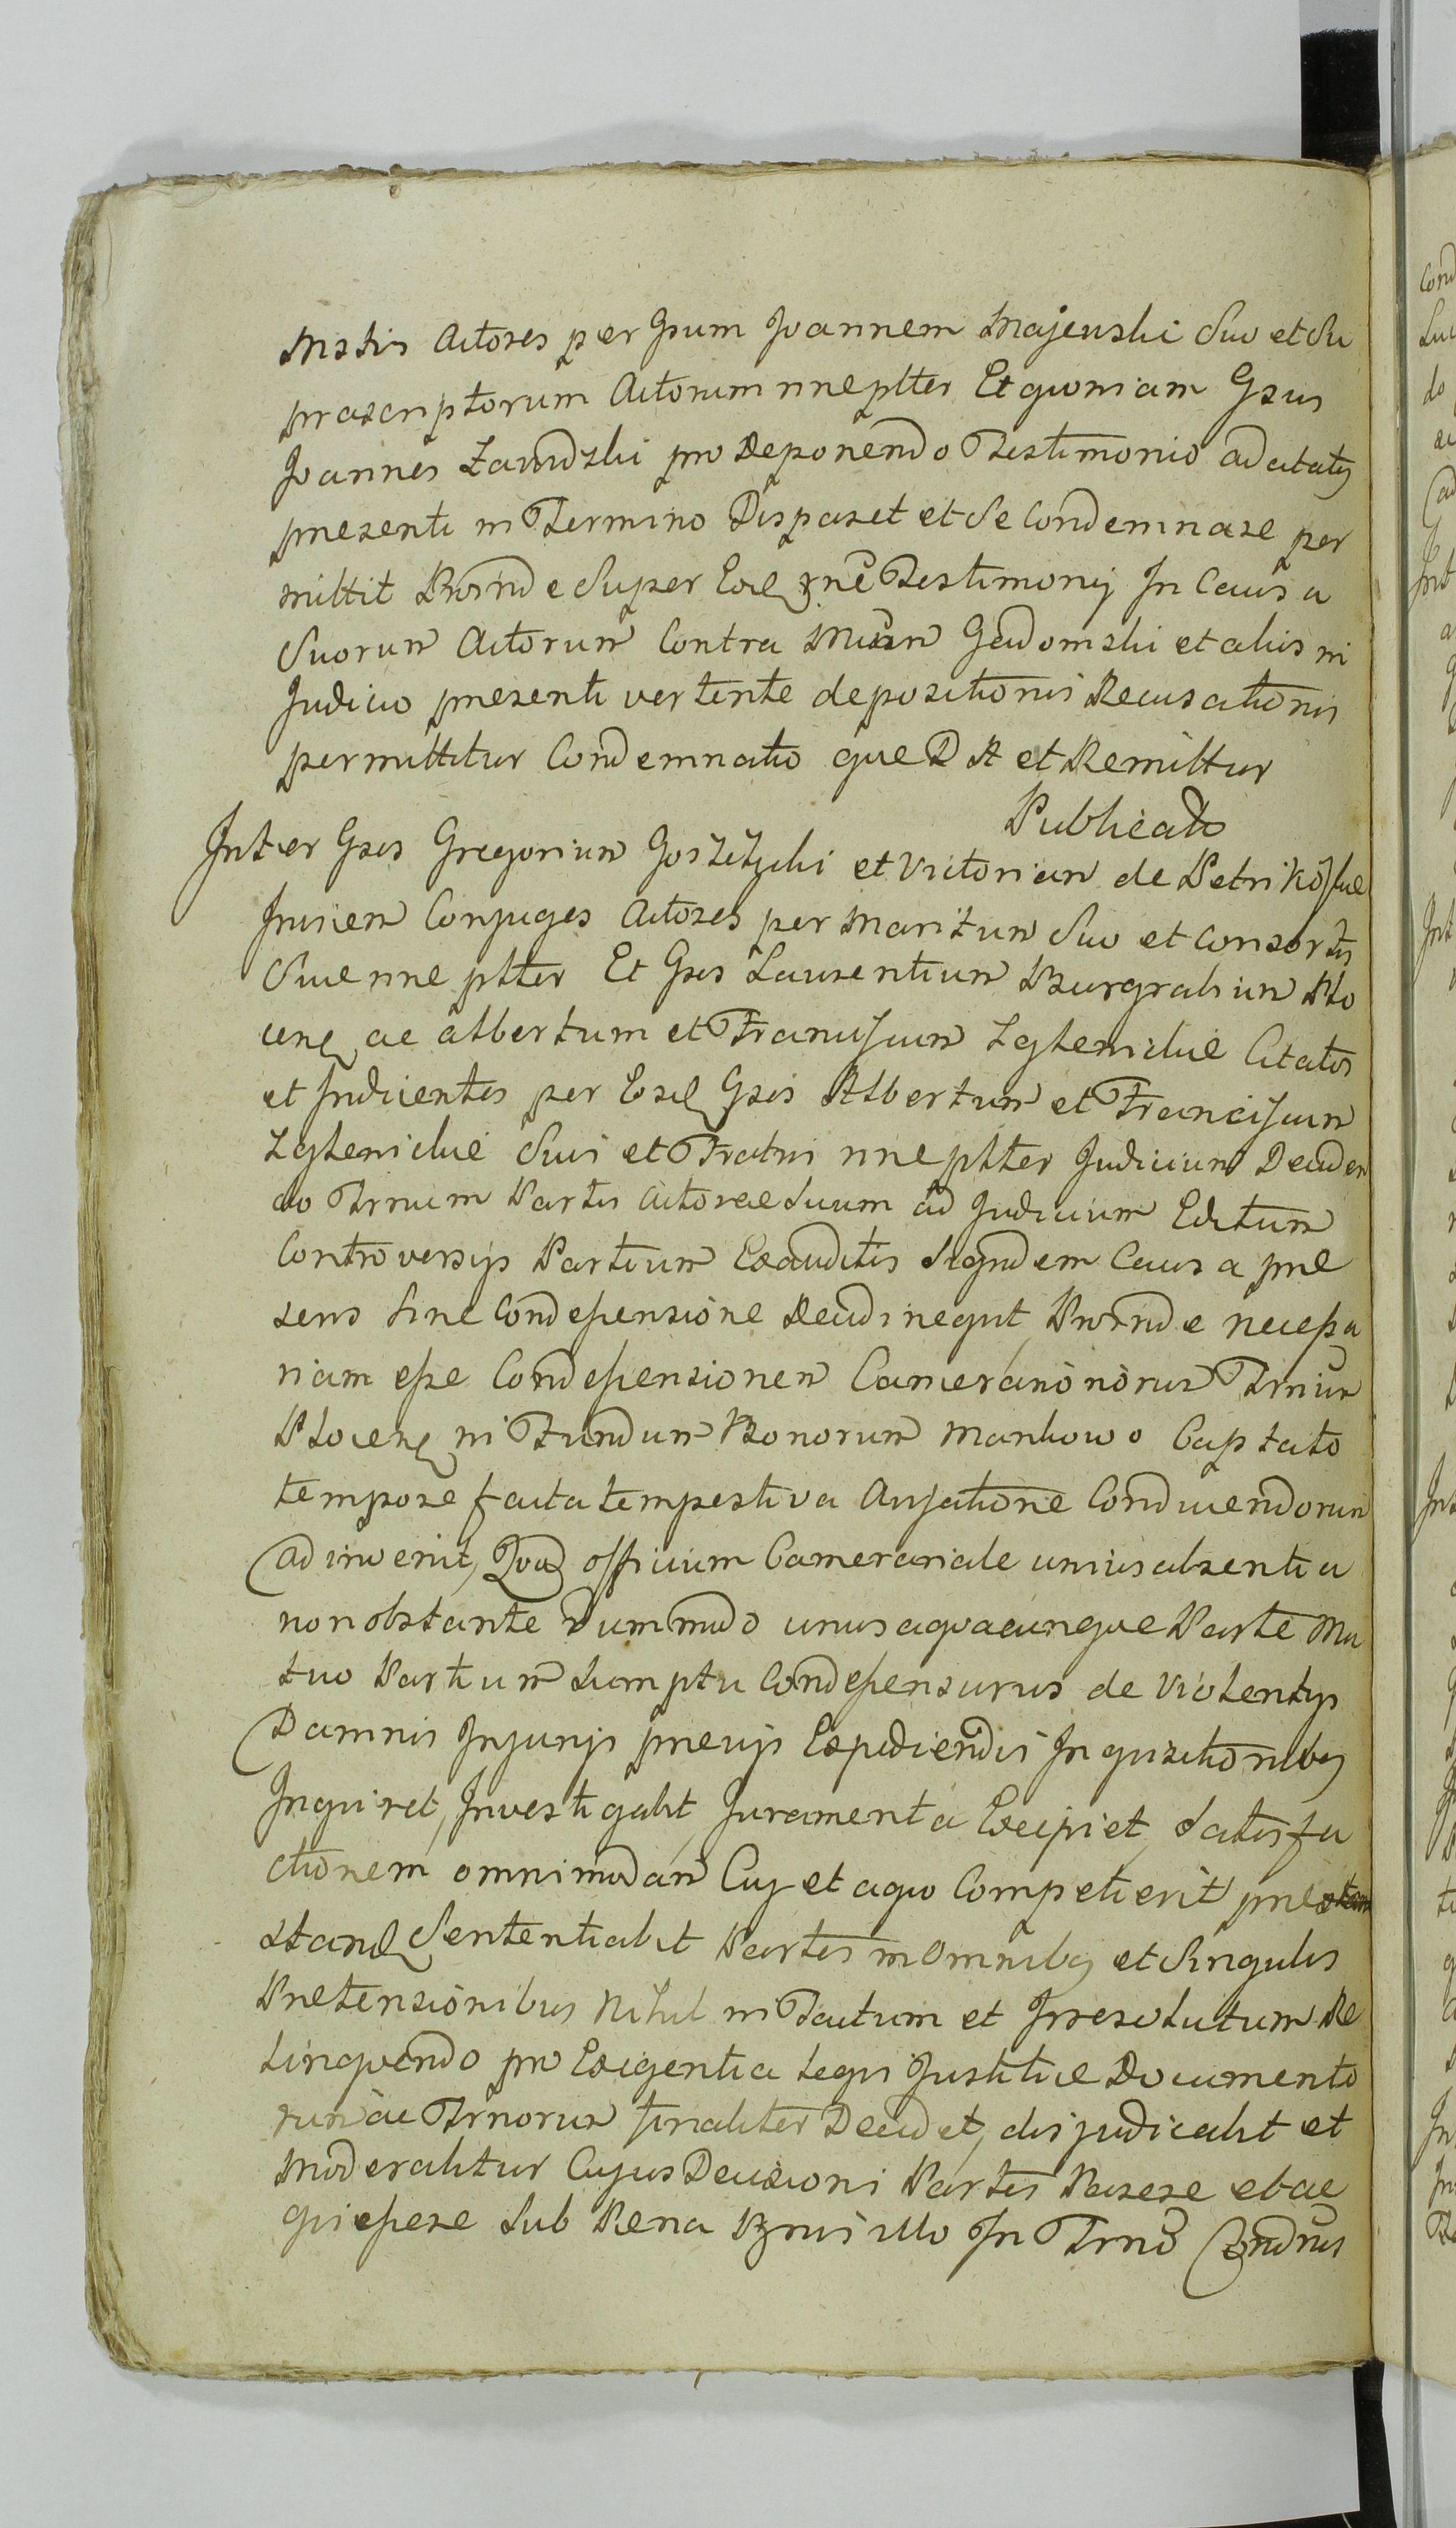 Actores per Gsum Joannem Majewski Suo et Su
prascriptorum Actorum nne pltter Et quoniam Gsus
Joannes pro Deponendo Testimonio ad citatg
presenti in Termino Disparet et se Condemnare per
mittit Proinde Super Testimonij In Causa
Suorum Actorum Contra Gadomski et alios in
Judicio presenti vertente depositionis Recusationis
permittitur Condemnatio que D A et Remittur
Publicato
Inter Gsos Gregorium et Victoriam de
Invicem Conjuges Actores per Maritum Suo et Consortis
Suae nne pltter Et Gsos Laurentium Burgrabium Plo
cen ac Albertum et Franciscum Zglenickie Citatos
et Inducentes per Gsos Albertum et Franciscum
Zglenickie Sui et Fratris nne pltter Judicium Deciden
do Trnum Partis Actoreae Suum ad Judicium Editum
Controversijs Partium Exauditis Siquidem Causa prae
sens sine Condescensione Decidi nequit, Proinde necessa
riam esse Condescensionem Camerariorum Trnum
Plocen in Fundum Bonorum Mankowo Captato
tempore facta tempestiva Avisatione Conducendorum
adinvenit, Quod officium Camerariale unius absentia
non obstante dummodo unus a quacunque Parte Mu
tuo Partium sumptu Condescensurus de Violentijs
Damnis Injurijs praevijs Expediendis Inquisitionibg
Inquiret, Investigabit, Juramenta Excipiet, Satisfa
ctionem omnimodam Cuj et a quo Competierit prae
stand Sententiabit Partes in Omnibg et Singulis
Praetensionibus Nihil in Tactum et Irresolutum Re
linquendo pro Exigentia Legis Justitiae Documento
rum ac Trnorum finaliter Decidet, disjudicabit et
Moderabitur Cujus Decisioni Partes Parere et ac
quiescere sub Pena Banniullo In Trno